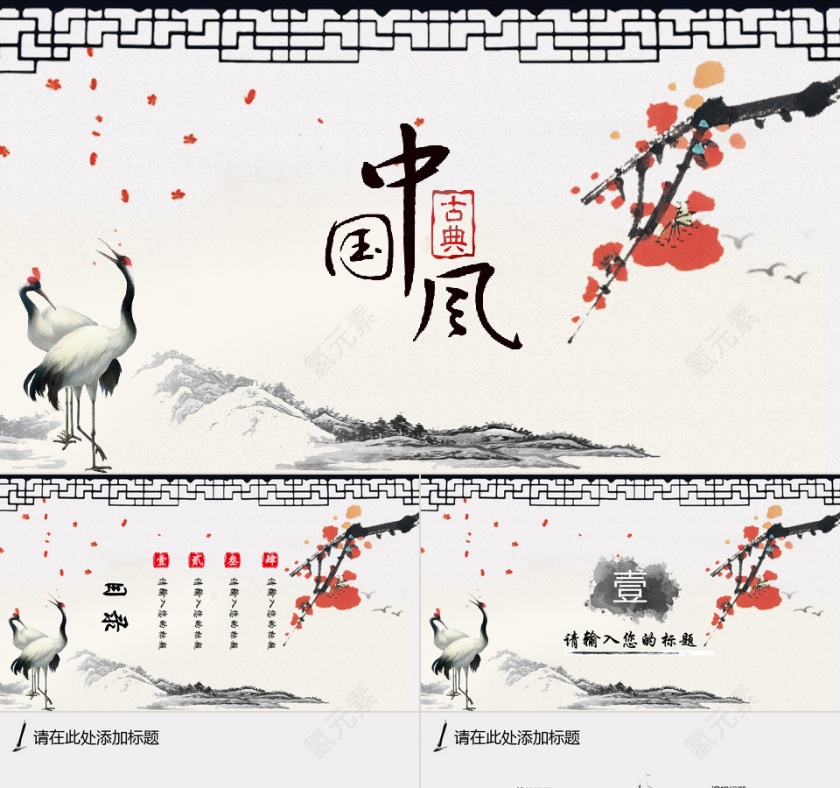 中国风
古典
氢元素
氢元素
目录
壹
请输入您的标题
贰
请输入您的标题
叁
请输入您的标题
肆
请输入您的标题
壹
请输入您的标题
氢元素
氢元素
请在此处添加标题
请在此处添加标题